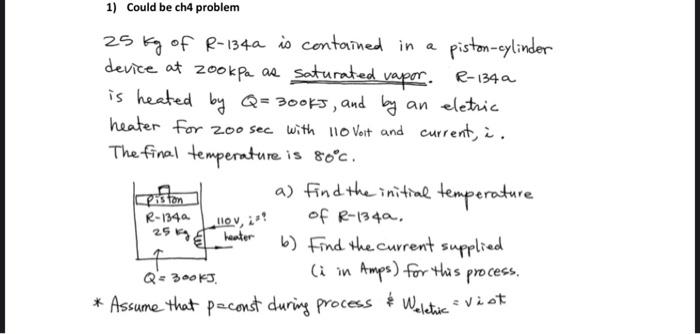 1) Could be ch4 problem
25 kg of R-134a is contained in a piston-cylinder
device at 200kPa as saturated vapor. R-134a
is heated by Q=300KJ, and by an eletric
heater for 200 sec with 110 Volt and current, i.
The final temperature is 80°C.
a) find the initial temperature
of R-134a.
b) Find the current supplied
(i in Amps) for this process.
Piston
R-134a
25 kg
110V, i=?
heater
Q=300KJ.
* Assume that p=const during process & Weletric = Vi∆t